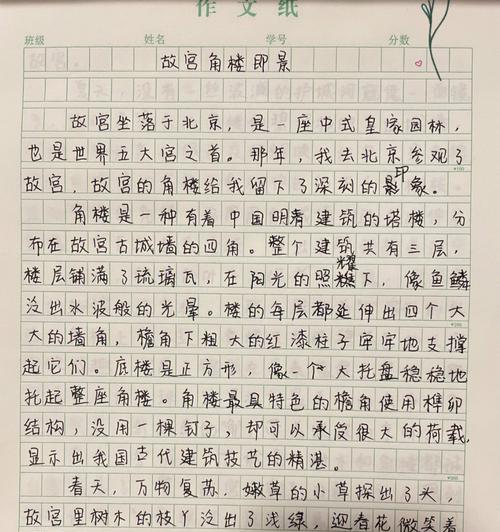 作文纸
班级 姓名 学号 分数
故宫角楼即景
故宫坐落于北京,是一座中式皇家园林,
也是世界五大宫之首。那年,我去北京参观了
故宫,故宫的角楼给我留下了深刻的印象。
角楼是一种有着中国明者建筑的塔楼,分
布在故宫古城墙的四角。整个建筑共有三层,
楼层铺满了琉璃瓦,在阳光的照耀下,像鱼鳞
泛出水波般的光晕。楼的每层都延伸出四个大
大的墙角,檐角下粗大的红漆柱子牢牢地支撑
起它们。底楼是正方形,像一个大托盘稳稳地
托起整座角楼。角楼最具特色的檐角使用榫卯
结构,没用一棵钉子,却可以承受很大的荷载,
显示出我国古代建筑技艺的精湛。
春天,万物复苏,嫩草的小草探出了头,
故宫里树木的枝丫泛出了浅绿,迎春花微笑着